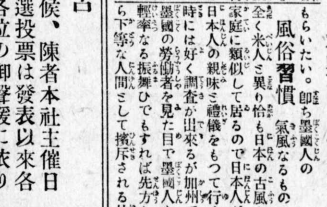 もらいたい。卽ち墨國人の
風俗習慣 氣風なるもの
全く米人と異り恰も日本の古風
家庭に類似して居るので日本人
日本人の親味と禮儀をもつて行
時には好く調査が出來るが加州
墨國の勞働者を見た目で墨國人
輕率なる振舞ひでもすれば先方
ら下等な人間として擯斥される
候、陳者本社主催日
選投票は發表以來各
各位の御聲援に依り